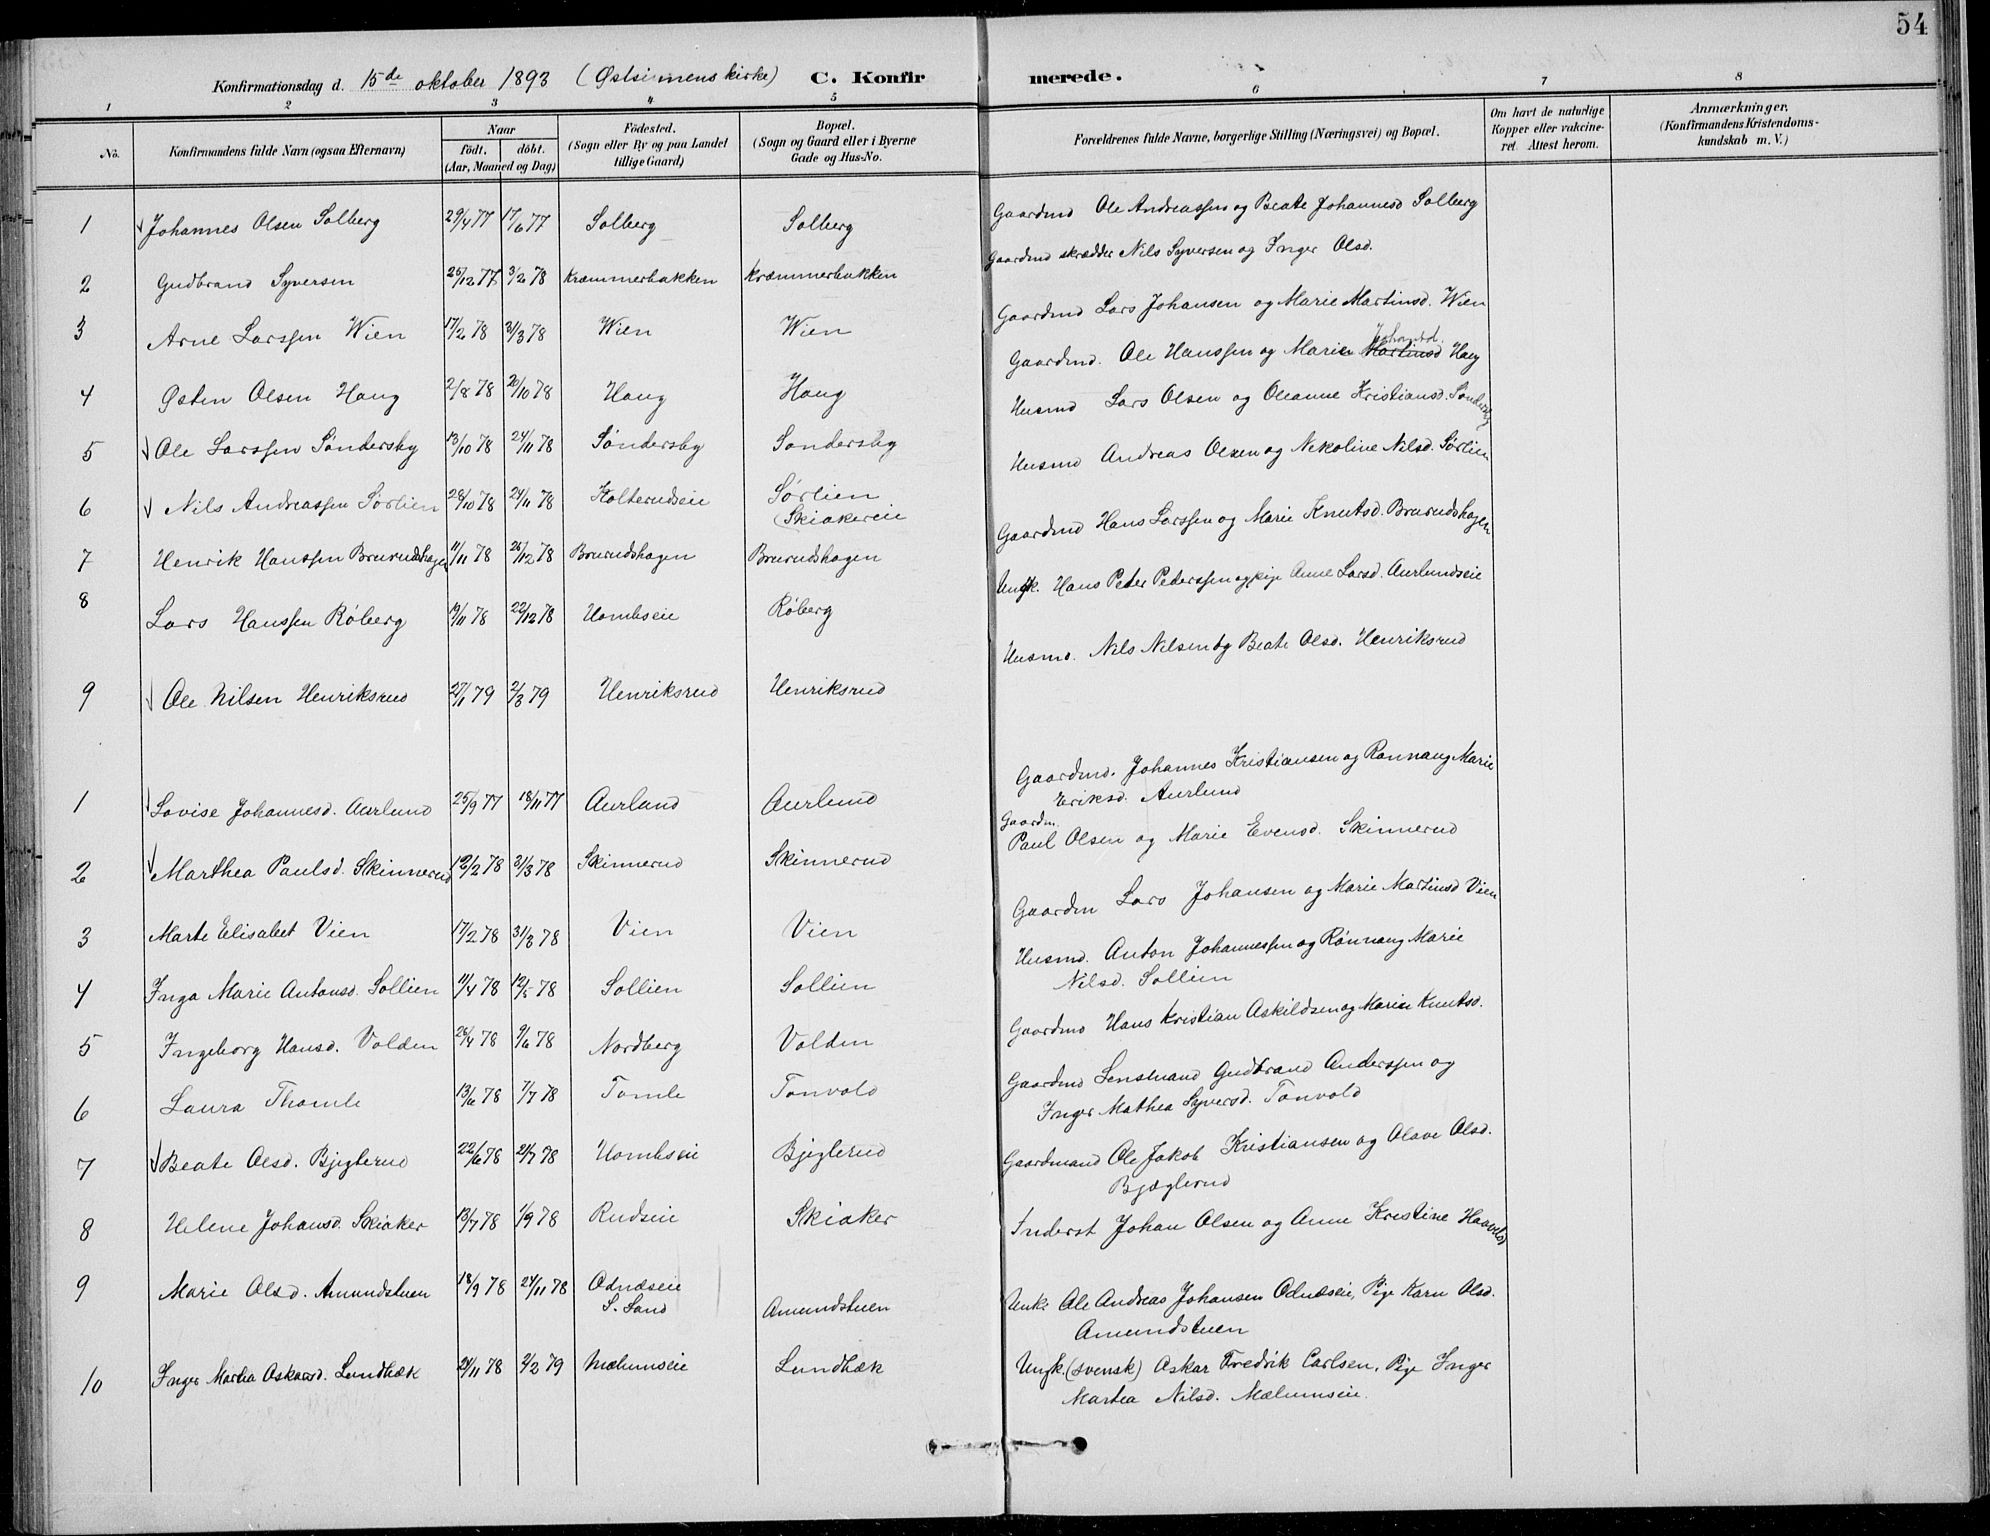 54
Konfirmationsdag d. 15de oktober 1893 (Østsinnens kirke) C. Konfirmerede.
1 2 3 4 5 6 7 8
No. Konfirmandens fulde Navn (ogsaa Efternavn) Naar født. døbt. (Aar, Maaned og Dag) Fødested. (Sogn eller By og paa Landet tillige Gaard) Bopæl. (Sogn og Gaard eller i Byerne Gade og Hus-No. Forældrenes fulde Navne, borgerlige Stilling (Næringsvei) og Bopæl. Om havt de naturlige Kopper eller vakcineret. Attest herom. Anmærkninger. (Konfirmandens Kristendomskundskab m. V.)
1 Johannes Olsen Solberg 29/4 77 17/6 77 Solberg Solberg Gaardmd Ole Andreassen og Beate Johannesd Solberg
2 Gudbrand Syversen 25/12 77 3/2 78 Kræmmerbakken Kræmmerbakken Gaardmd skrædder Nils Syversen og Inger Olsd.
3 Arne Larssen Wien 17/2 78 31/3 78 Wien Wien Gaardmd Lars Johansen og Marie Martinsd. Wien
4 Østen Olsen Haug 2/8 78 20/10 78 Haug Haug Gaardmd. Ole Hanssen og Marie Martinsd Haug
5 Ole Larssen Søndersby 13/10 78 24/11 78 Søndersby Søndersby Husmd Lars Olsen og Oleanne Kristiansd. Søndersby
6 Nils Andreassen Sørlien 28/10 78 24/11 78 Holterudseie Sørlien (Skiakereie Husmd Andreas Olsen og Nekoline Nilsd. Sørlien
7 Henrik Hanssen Bruerudshagen 11/11 78 26/12 78 Bruerudshagen Bruerudshagen Gaardmd Hans Larssen og Marie Knutsd. Bruerudshagen
8 Lars Hanssen Røberg 19/11 78 22/12 78 Uombseie Røberg Ungk. Hans Peter Pederssen og pige Anne Larsd. Aurlundseie
9 Ole Nilsen Henriksrud 27/1 79 2/3 79 Henriksrud Henriksrud Husmd. Nils Nilsen og Beate Olsd. Henriksrud
1 Lovise Johannesd. Aurlund 25/9 77 18/11 77 Aurland Aurlund Gaardmd. Johannes Kristiansen og Rønnaug Marie
Eriksd. Aurlund
2 Marthea Paulsd. Skinnerud 19/2 78 31/3 78 Skinnerud Skinnerud Gaardm. Paul Olsen og Marie Evensd. Skinnerud
3 Marte Elisabet Vien 17/2 78 31/3 78 Vien Vien Gaardm Lars Johansen og Marie Martinsd Vien
4 Inga Marie Antonsd. Sollien 11/4 78 12/5 78 Sollien Sollien Husmd. Anton Johannessen og Rønnaug Marie
Nilsd. Sollien
5 Ingeborg Hansd. Volden 28/4 78 9/6 78 Nordberg Volden Gaardmd Hans Kristian Askildsen og Marie Knutsd.
6 Laura Thomle 13/6 78 7/7 78 Tomle Tonvold Gaardmd Lensmand Gudbrand Anderssen og
Inger Mathea Syversd. Tonvold
7 Beate Olsd. Bjeglerud 22/6 78 21/7 78 Uombseie Bjeglerud Gaardmand Ole Jakob Kristiansen og Olave Olsd.
Bjæglerud
8 Helene Johansd. Skiaker 13/7 78 1/9 78 Rudseie Skiaker Inderst Johan Olsen og Anne Kristine Haavelsd
9 Marie Olsd. Amundstuen 18/9 78 24/11 78 Odnæseie S. Land Amundstuen Unk: Ole Andreas Johansen Odnæseie, Pige Karn Olsd.
Amundstuen
10 Inger Martea Oskarsd. Lundbæk 24/11 78 2/2 79 Mælumseie Lundbæk Ungk. (svensk) Oskar Fredrik Carlsen, Pige Inger
Martea Nilsd. Mælumseie.